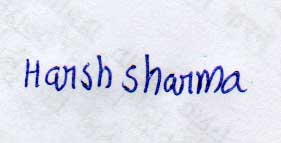 Harsh sharma